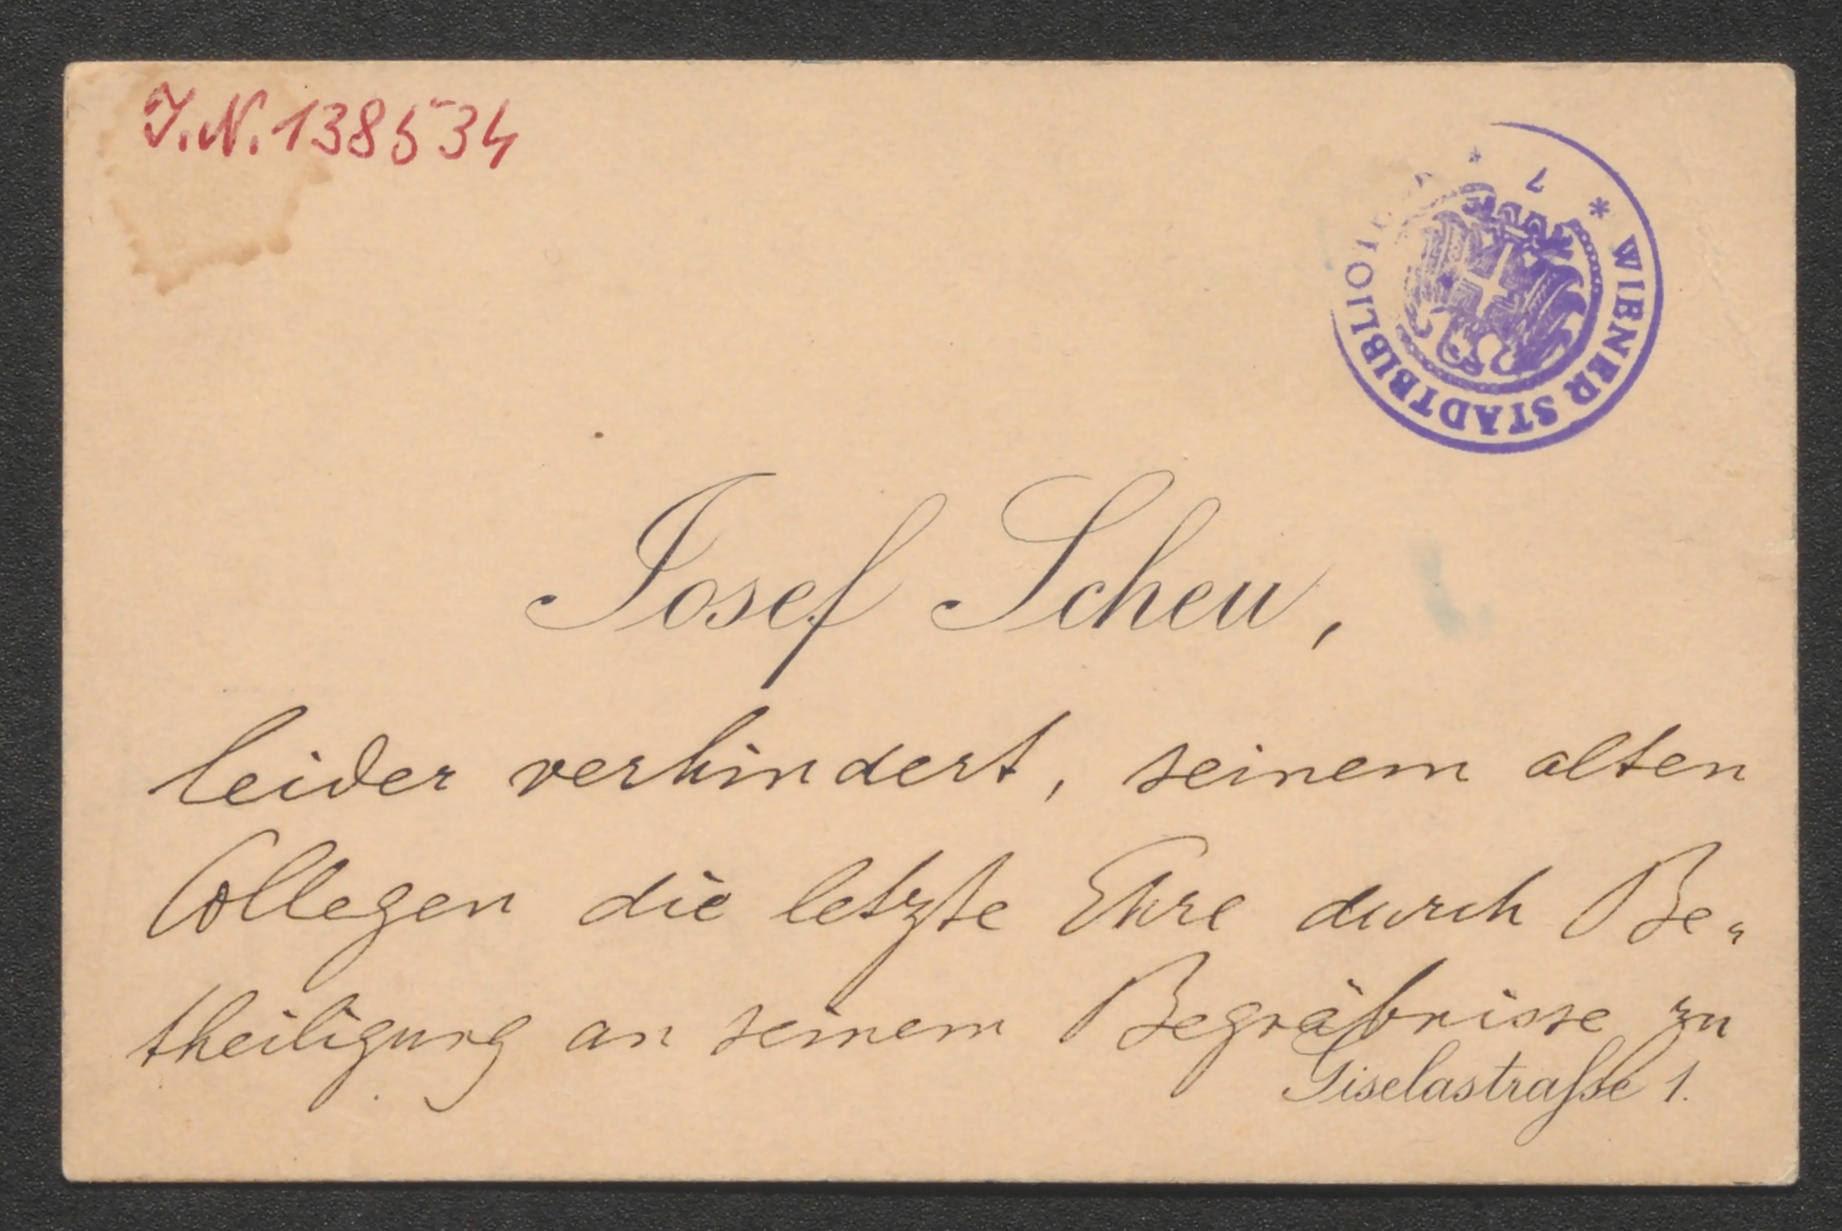 J.N. 138534
* WIENER STADTBIBLIOTHEK * 7
Josef Scheu,
leider verhindert, seinem alten
Collegen die letzte Ehre durch Be„
theiligung an seinem Begräbnisse zu
Giselastraße 1.